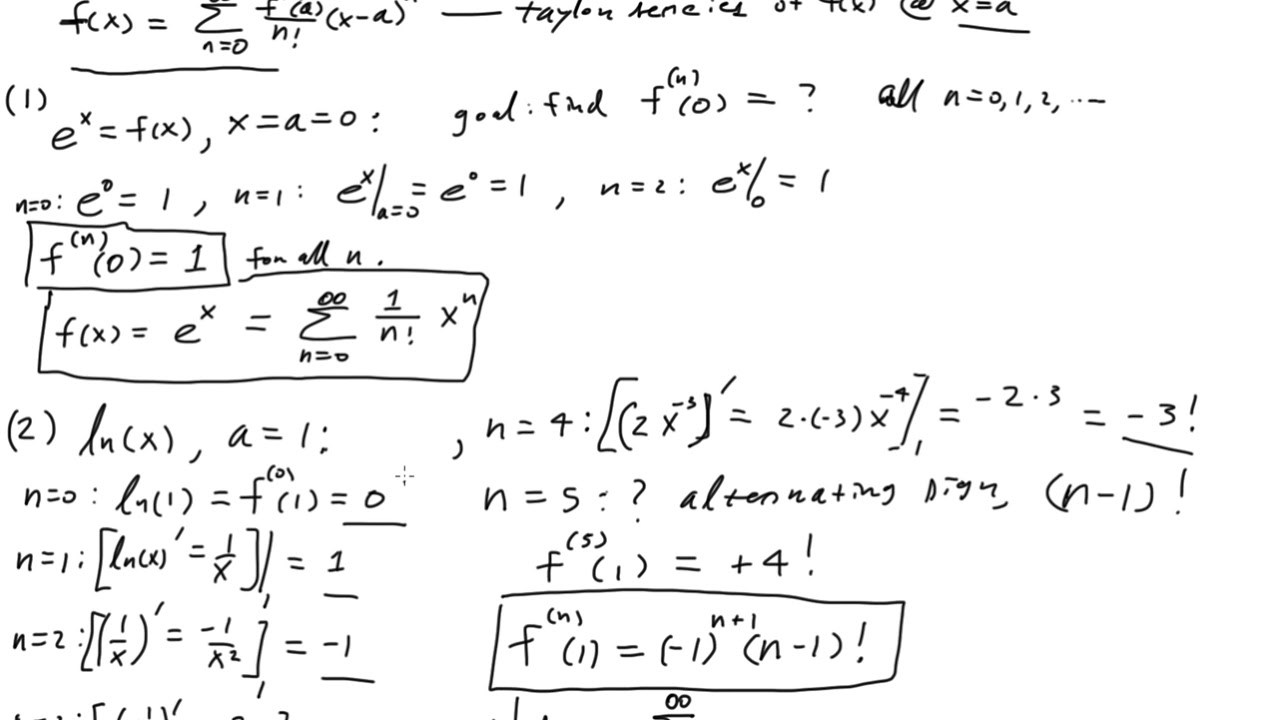 f(x) = ∞ Σ n=0 f(a)/n! (x-a)^n — taylor series of f(x) @ x=a
(1) e^x = f(x), x=a=0: goal: find f^(n)(0) = ? all n=0,1,2,...
n=0: e^0 = 1, n=1: e^x|a=0 = e^0 = 1, n=2: e^x|0 = 1
f^(n)(0) = 1 for all n.
f(x) = e^x = ∞ Σ n=0 1/n! x^n
(2) ln(x), a=1:
n=0: ln(1) = f^(0)(1) = 0
n=1: [ln(x)' = 1/x]|1 = 1
n=2: [(1/x)' = -1/x^2]1 = -1
, n=4: [(2x^-3)' = 2·(-3)x^-4]1 = -2·3 = -3!
n=5: ? alternating sign, (n-1)!
f^(5)(1) = +4!
f^(n)(1) = (-1)^n+1 (n-1)!
∞